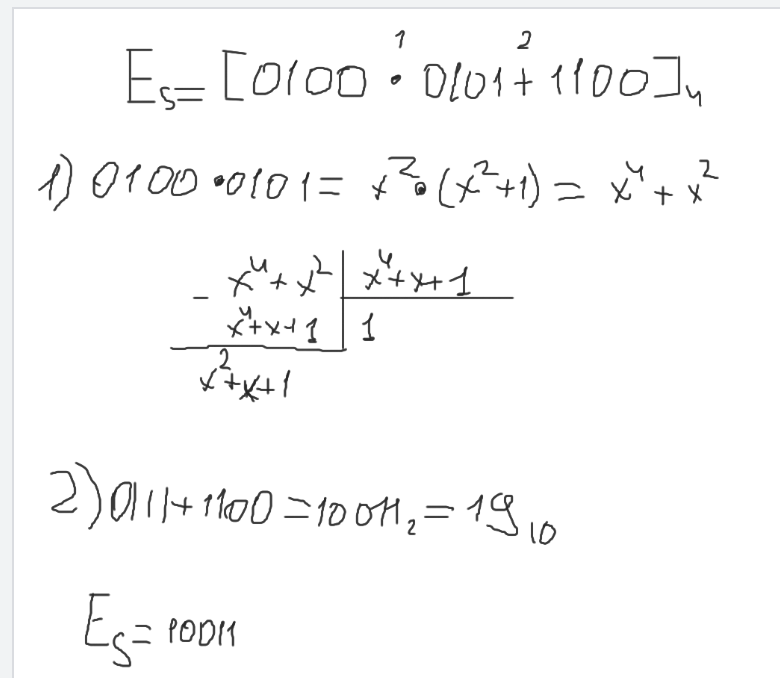 1 2
E₅= [0100 · 0101 + 1100]₄
1) 0100 · 0101 = x² · (x²+1) = x⁴ + x²
- x⁴ + x² | x⁴+x+1
x⁴+x+1 | 1
x²+x+1
2) 0111+1100=10011₂=19₁₀
E₅=10011